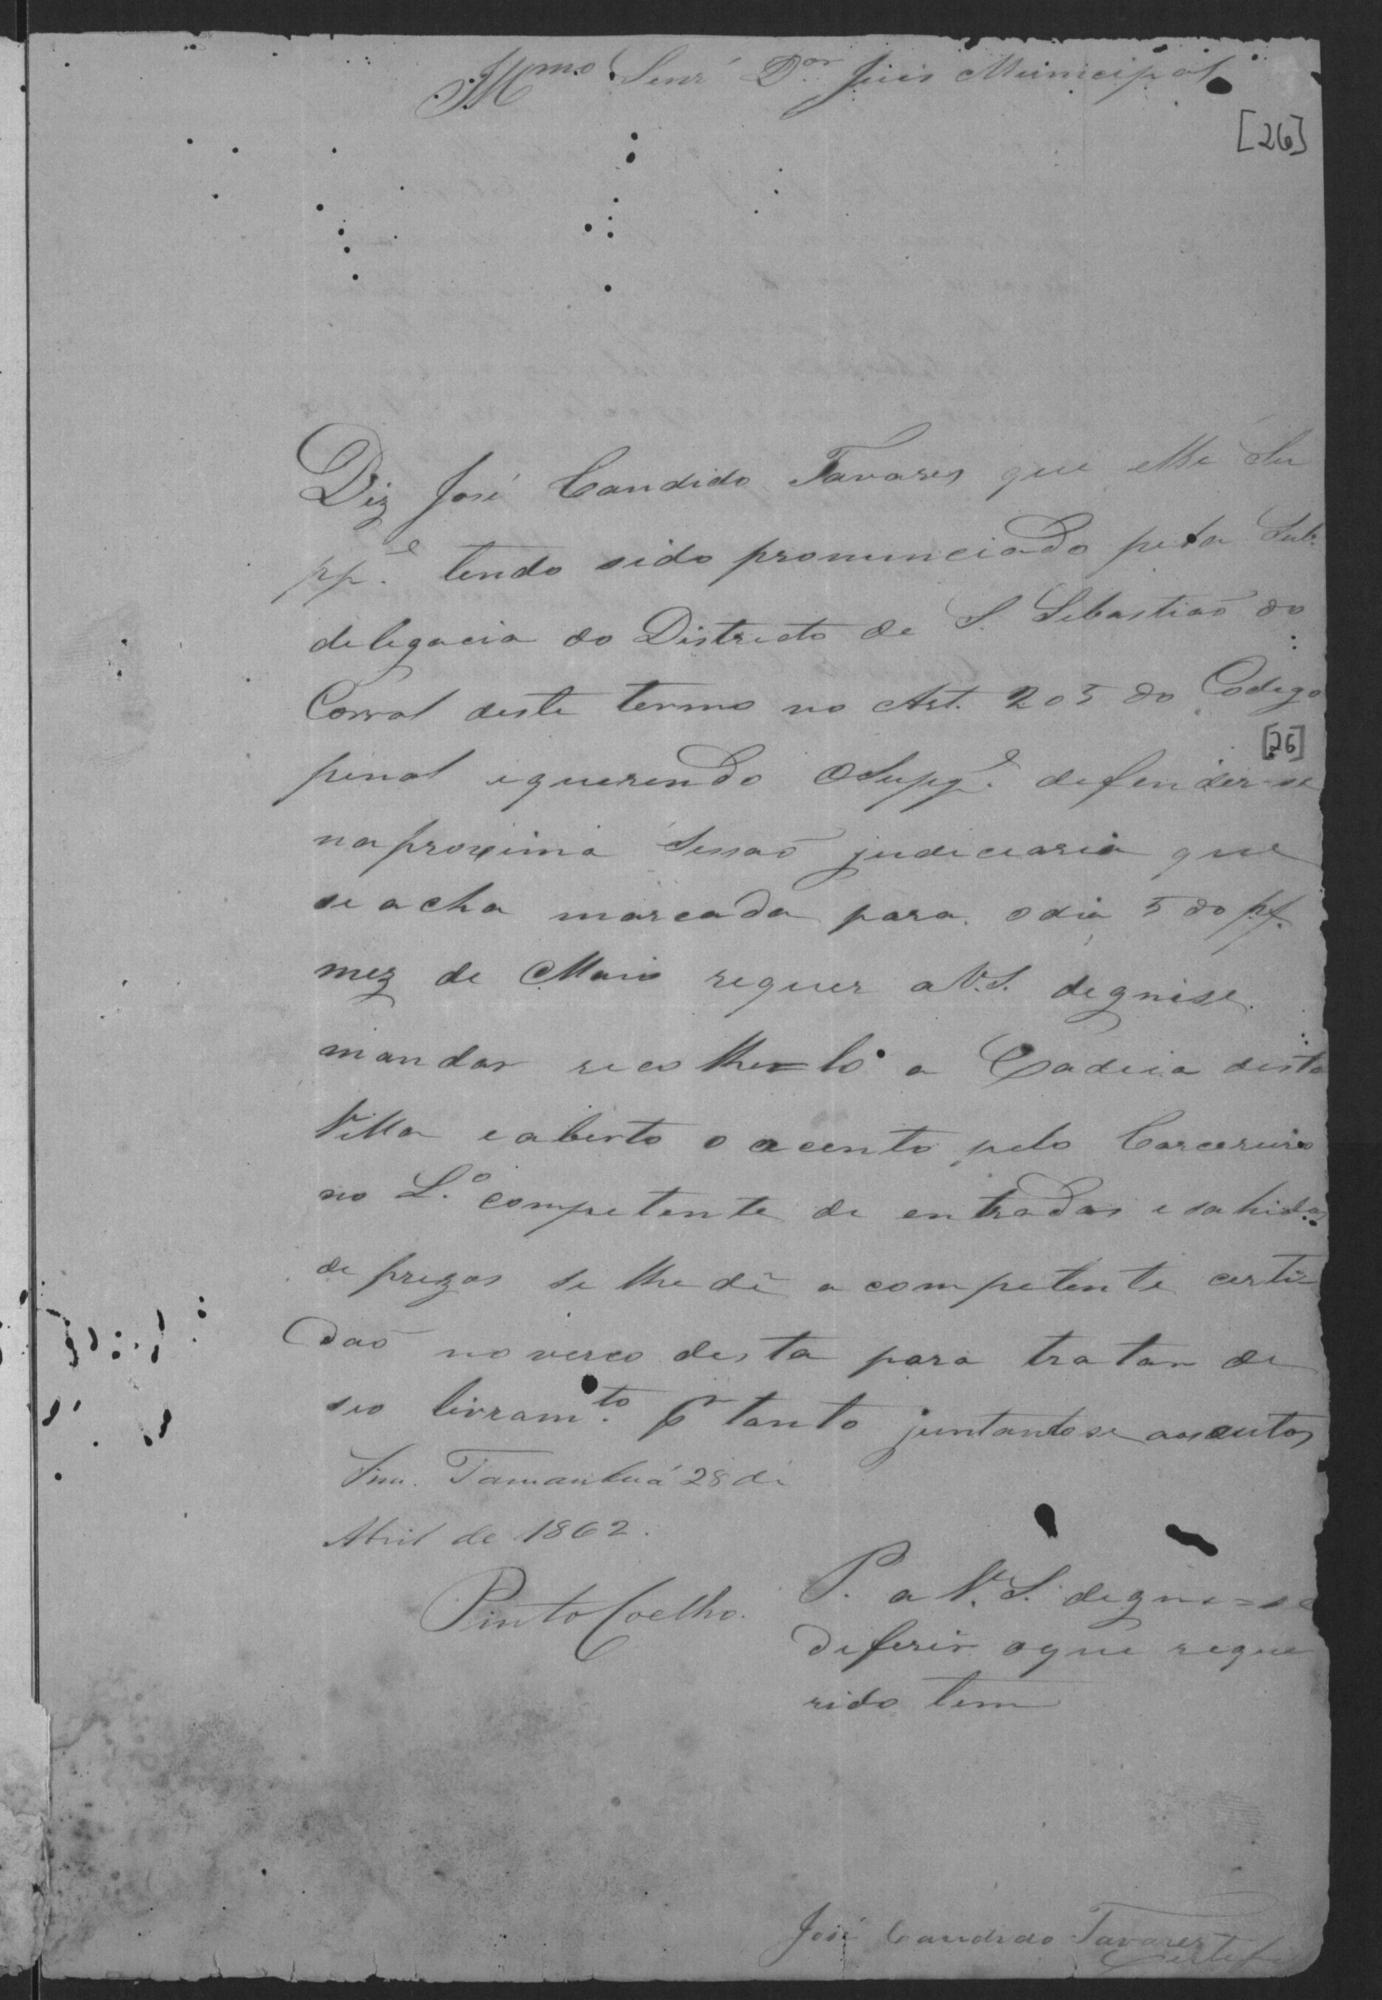 Illmo. Senr. Dor. Juis Municipal
[26]
Diz José Candido Tavares que elle Su
ppe. tendo sido pronunciado pela Sub
delegacia do Districto de S. Sebastiaõ do
Corral deste termo no Art. 205 do Codego
[26]
penal e querendo o Suppe. defender-se
na proxima Sessaõ judiciaria que
se acha marcada para o dia 5 do pf.
mez de Maio requer a V.S. degnise
mandar recolhe=lo a Cadeia desta
Villa e aberto o acento pelo Carcereiro
no Lo. competente de entradas e sahidas
de prezos se lhe dê a competente certi
daõ no verco desta para tratar de
seo livramto. Pr tanto juntandose aos autos
Sim. Tamanduá 28 de
Abril de 1862.
Pinto Coelho.
P. a V.S. degne=se
deferir o que reque
rido tem
José Candido Tavares